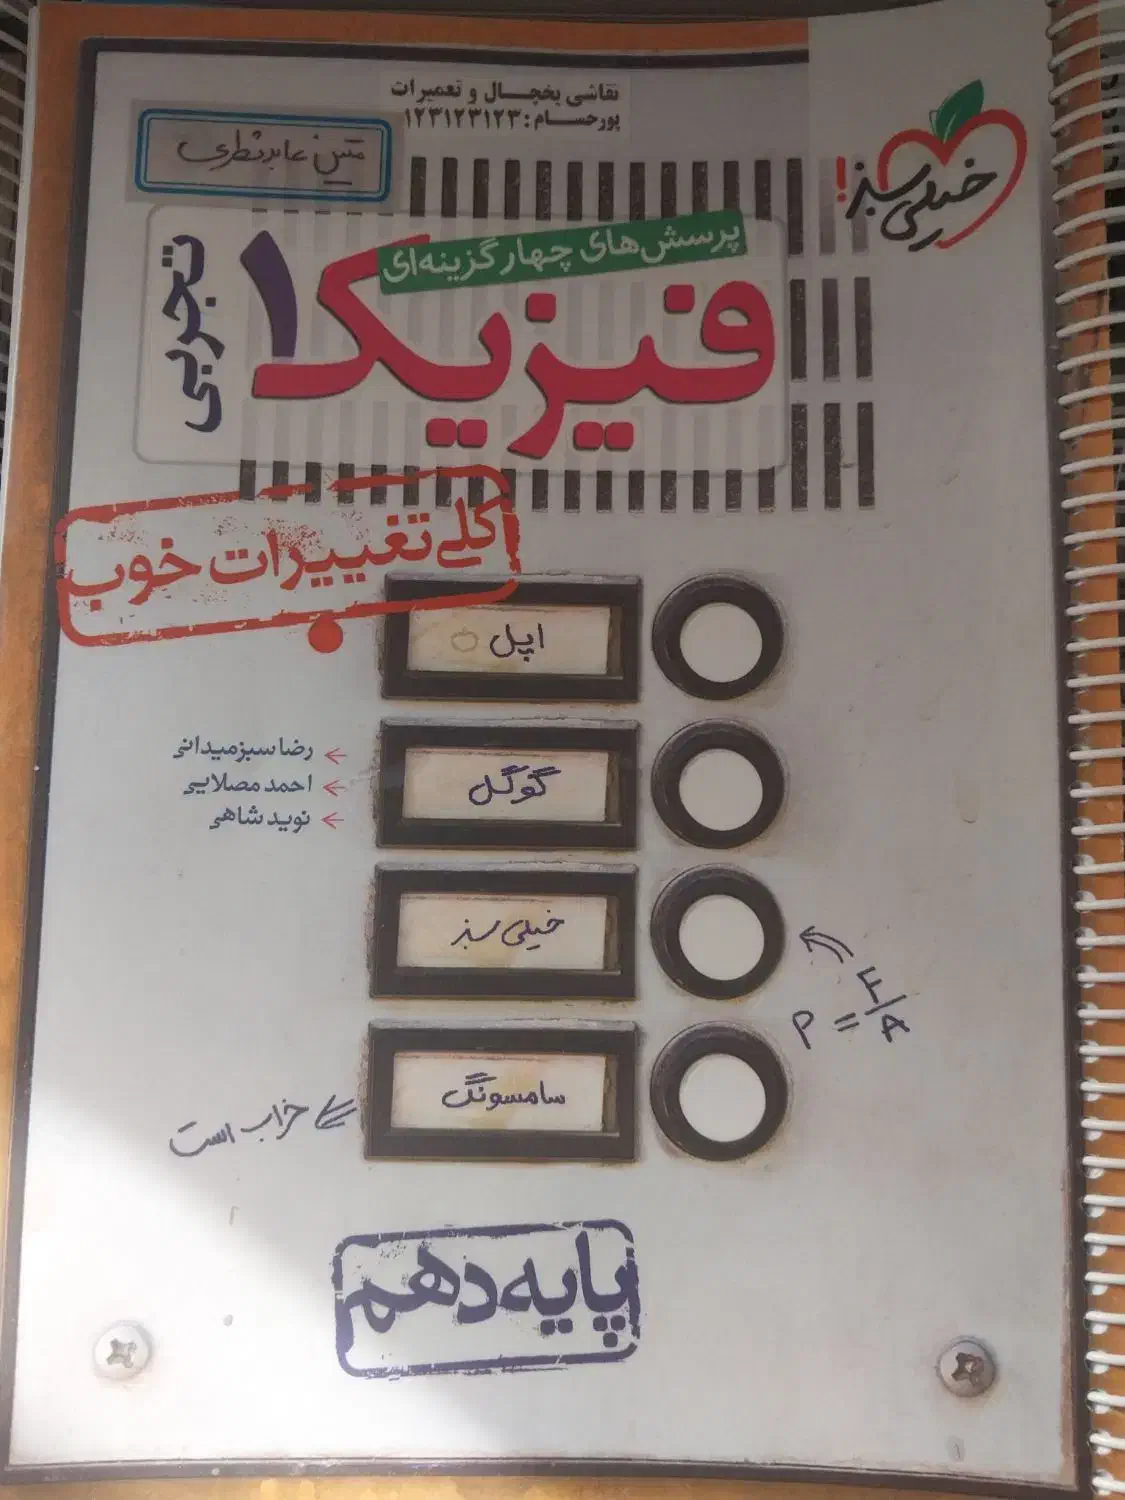 نقاشی یخچال و تعمیرات
پورحسام: ۱۲۳۱۲۳۱۲۳
متین عابد نظری
خیلی سبز!
پرسش‌های چهارگزینه‌ای
فیزیک ۱
تجربی
کلی تغییرات خوب
اپل
رضا سبزمیدانی
احمد مصلایی
نوید شاهی
گوگل
خیلی سبز
P = F/A
سامسونگ
خراب است
پایه دهم